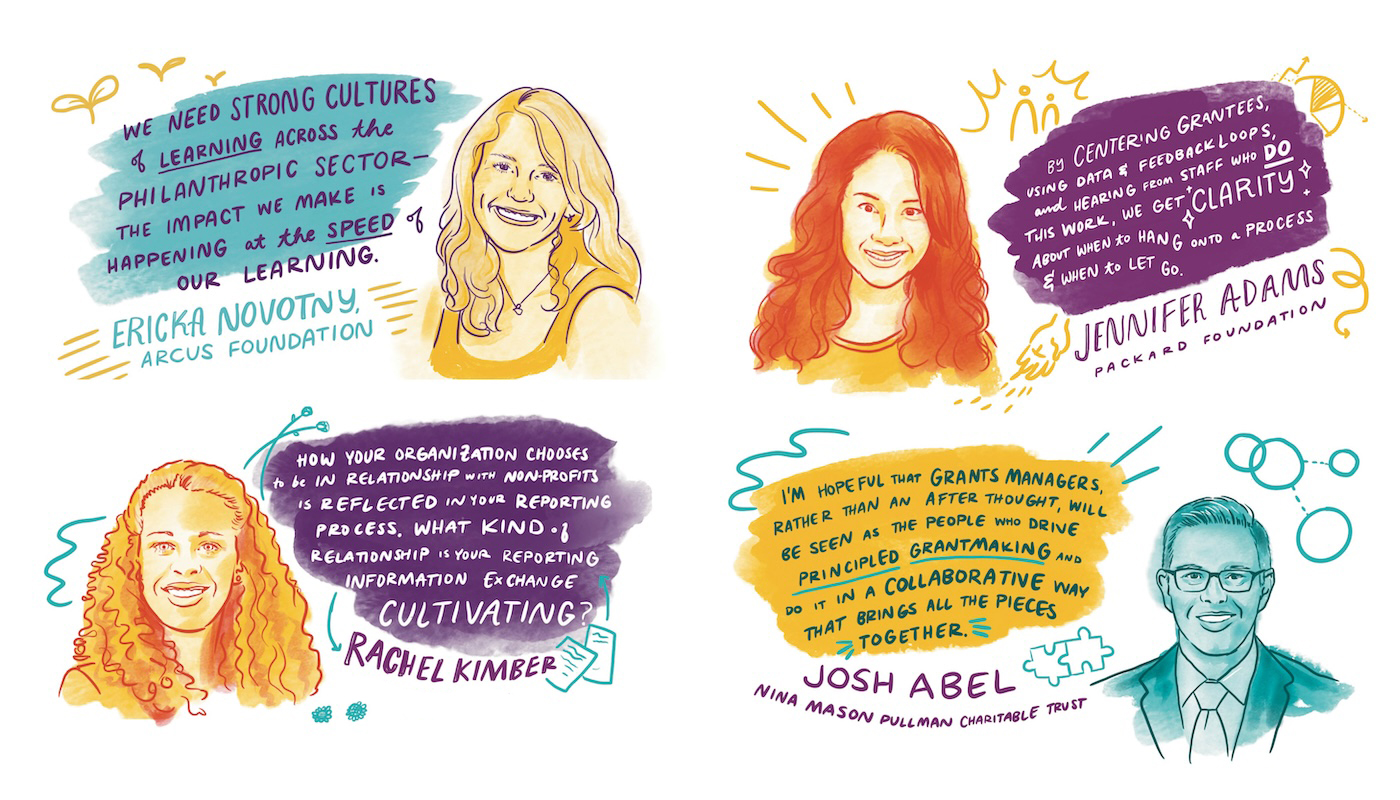 WE NEED STRONG CULTURES
of LEARNING ACROSS the
PHILANTHROPIC SECTOR—
THE IMPACT WE MAKE IS
HAPPENING at the SPEED of
OUR LEARNING.
ERICKA NOVOTNY,
ARCUS FOUNDATION
BY CENTERING GRANTEES,
USING DATA & FEEDBACK LOOPS,
and HEARING FROM STAFF WHO DO
THIS WORK, WE GET CLARITY
ABOUT WHEN to HANG ONTO a PROCESS
& WHEN to LET GO.
JENNIFER ADAMS
PACKARD FOUNDATION
HOW YOUR ORGANIZATION CHOOSES
to be IN RELATIONSHIP WITH NON-PROFITS
IS REFLECTED IN YOUR REPORTING
PROCESS. WHAT KIND of
RELATIONSHIP IS YOUR REPORTING
INFORMATION EXCHANGE
CULTIVATING?
RACHEL KIMBER
I'M HOPEFUL THAT GRANTS MANAGERS,
RATHER THAN AN AFTER THOUGHT, WILL
BE SEEN AS THE PEOPLE WHO DRIVE
PRINCIPLED GRANTMAKING AND
DO IT IN A COLLABORATIVE WAY
THAT BRINGS ALL THE PIECES
TOGETHER.
JOSH ABEL
NINA MASON PULLMAN CHARITABLE TRUST